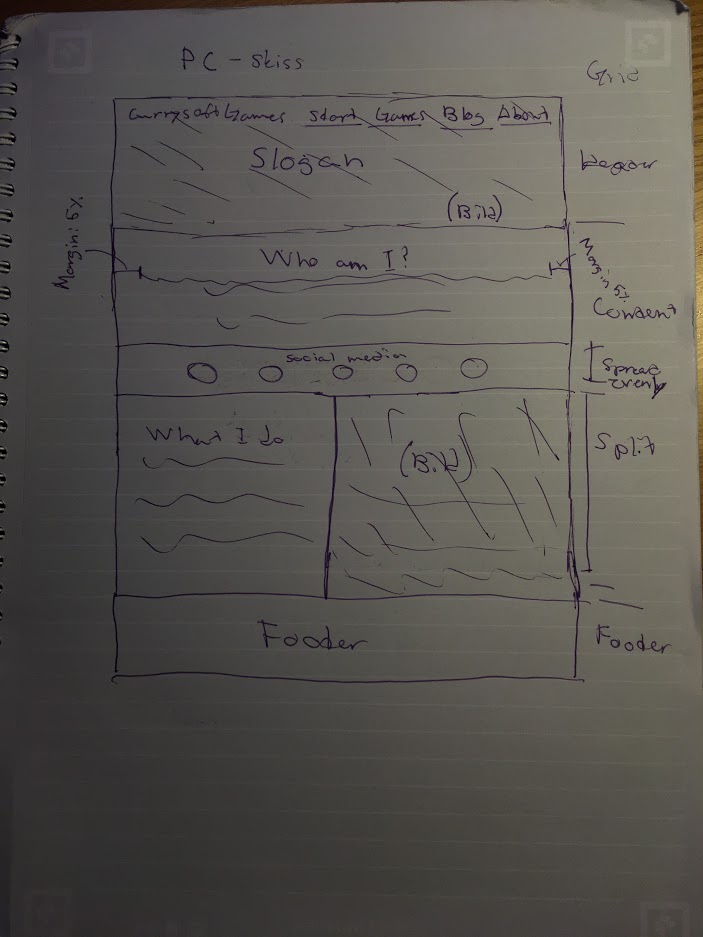 PC - Skiss
Grid
CurrysoftGames Start Games Blog About
Slogan
(Bild)
Margin: 5%
Who am I?
Margin 5%
Content
social media
Spread
evenly
What I do
(Bild)
Split
Fooder
Fooder